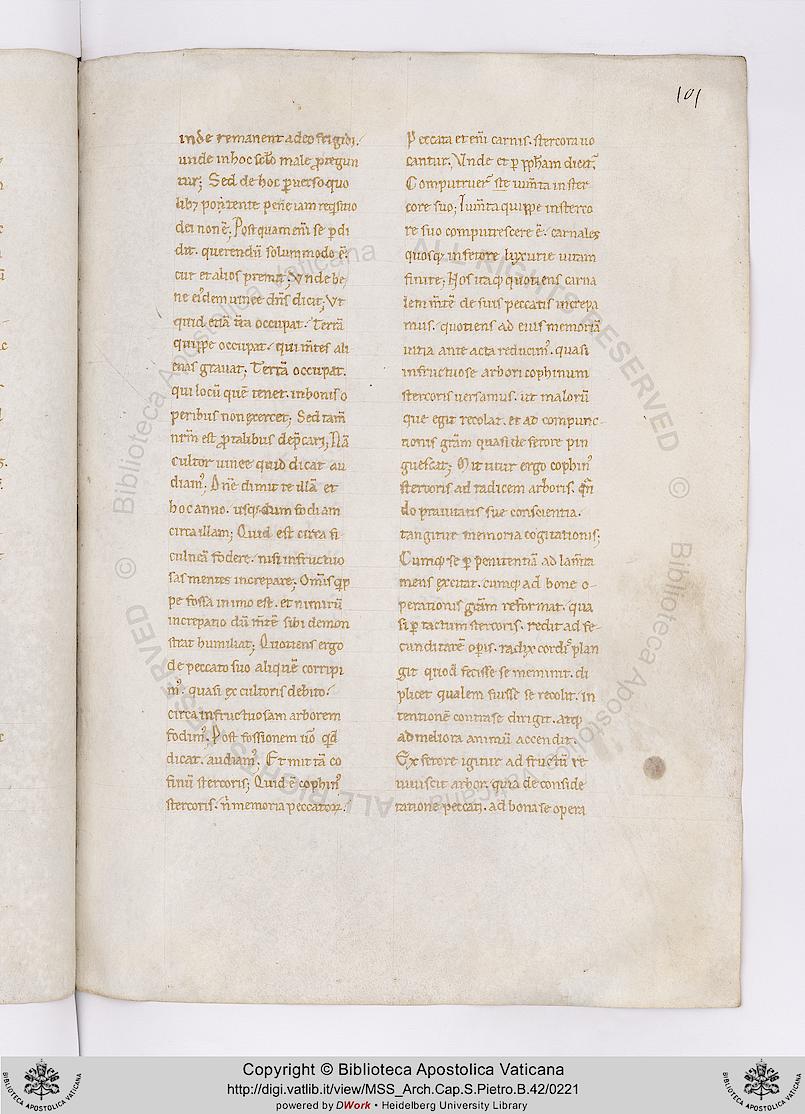 101
inde remanent adeo frigidi.
unde in hoc sc̄lo male p̱regun
tur; Sed de hoc p̱uerso quo
libꝫ pot̄tente pene iam req̇sitio
dei non ē; Postquam eni̅ se p̱di
dit. querendū solummodo ē.
cur et alios premit; Unde be
ne ei'dem uinee dn̄s dicit; Ut
quid etiā t̄ra occupat. Terrā
quippe occupat. qui m̄tes ali
enas grauat; Terrā occupat.
qui locū quē tenet. in bonis o
peribus non exercet; Sed tam̄
nr̄m est p̱ talibus dep̄cari; Nā
cultor uinee quid dicat au
diam'; Dn̄e dimitte illā et
hoc anno. usq; dum fodiam
circa illam; Quid est circa fi
culneā fodere. nisi infructuo
sas mentes increpare; Om̄is q̇p
pe fossa in imo est. et nimirū
increpatio dū m̄tē sibi demon
strat humiliat; Quotiens ergo
de peccato suo aliquē corripi
m'. quasi ex cultoris debito.
circa infructuosam arborem
fodim'; Post fossionem u̅o qd̄
dicat. audiam'; Et mittā co
finū stercoris; Quid ē cophin'
stercoris. n̄ memoria peccatoꝝ.
Peccata etenī carnis. stercora uo
cantur; Unde et p̱ pp̄ham dicit̃;
Computruer̄ iumta in ster
core suo; Iumta quippe in sterco
re suo computrescere ē. carnales
quosq; in fetore luxurie uitam
finire; Hos itaq; quotiens carna
lem m̄tē de suis peccatis increpa
mus. quotiens ad eius memoriā
uitia ante acta reducim'. quasi
infructuose arbori cophinum
stercoris uersamus. ut malorū
que egit recolat. et ad compunc-
tionis gr̄am quasi de fetore pin
guescat; Mittitur ergo cophin'
stercoris ad radicem arboris. qn̄
do prauitatis sue conscientia.
tangitur memoria cogitationis;
Cumq; se p̱ penitentiā ad lam̄ta
mens excitat. cumq; ad bone o-
perationis gr̄am reformat. qua
si p̱ tactum stercoris. redit ad fe-
cunditatē op̱is. radix cordis; plan
git quod fecisse se meminit. di
plicet qualem fuisse se recolit. in
tentionē contra se dirigit. atq;
ad meliora animū accendit.
Ex fetore igitur ad fructū re
uiuiscit arbor. quia de conside
ratione peccati. ad bona se opera
© Biblioteca Apostolica Vaticana
ALL RIGHTS RESERVED
© Biblioteca Apostolica Vaticana
ALL RIGHTS RESERVED
BIBLIOTECA APOSTOLICA VATICANA
Copyright © Biblioteca Apostolica Vaticana
http://digi.vatlib.it/view/MSS_Arch.Cap.S.Pietro.B.42/0221
powered by DWork • Heidelberg University Library
BIBLIOTECA APOSTOLICA VATICANA